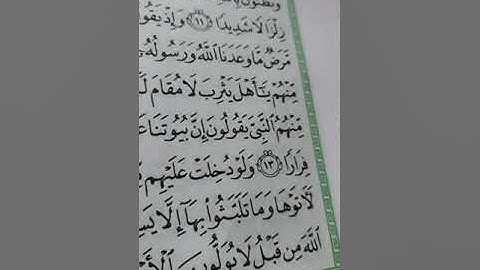 وَتَظُنُّونَ بِٱللَّهِ
زِلْزَالًا شَدِيدًا ١١ وَإِذْ يَقُولُ
مَّرَضٌ مَّا وَعَدَنَا ٱللَّهُ وَرَسُولُهُۥٓ
مِّنْهُمْ يَٰٓأَهْلَ يَثْرِبَ لَا مُقَامَ لَ
مِّنْهُمُ ٱلنَّبِىَّ يَقُولُونَ إِنَّ بُيُوتَنَا عَ
فِرَارًا ١٣ وَلَوْ دُخِلَتْ عَلَيْهِم
لَأٓتَوْهَا وَمَا تَلَبَّثُوا۟ بِهَآ إِلَّا يَسِ
ٱللَّهَ مِن قَبْلُ لَا يُوَلُّونَ ٱلْأَ